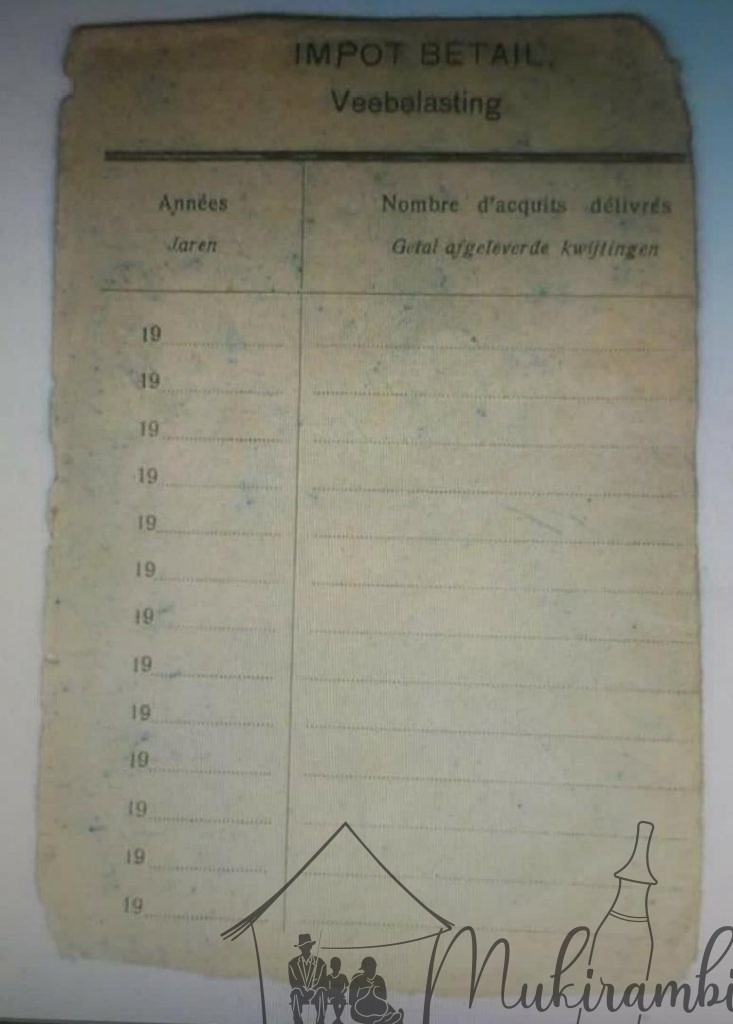 IMPOT BETAIL.
Veebelasting
Années
Nombre d'acquits délivrés
Jaren
Getal afgeleverde kwijtingen
19
19
19
19
19
19
19
19
19
19
19
19
19
Mukirambi